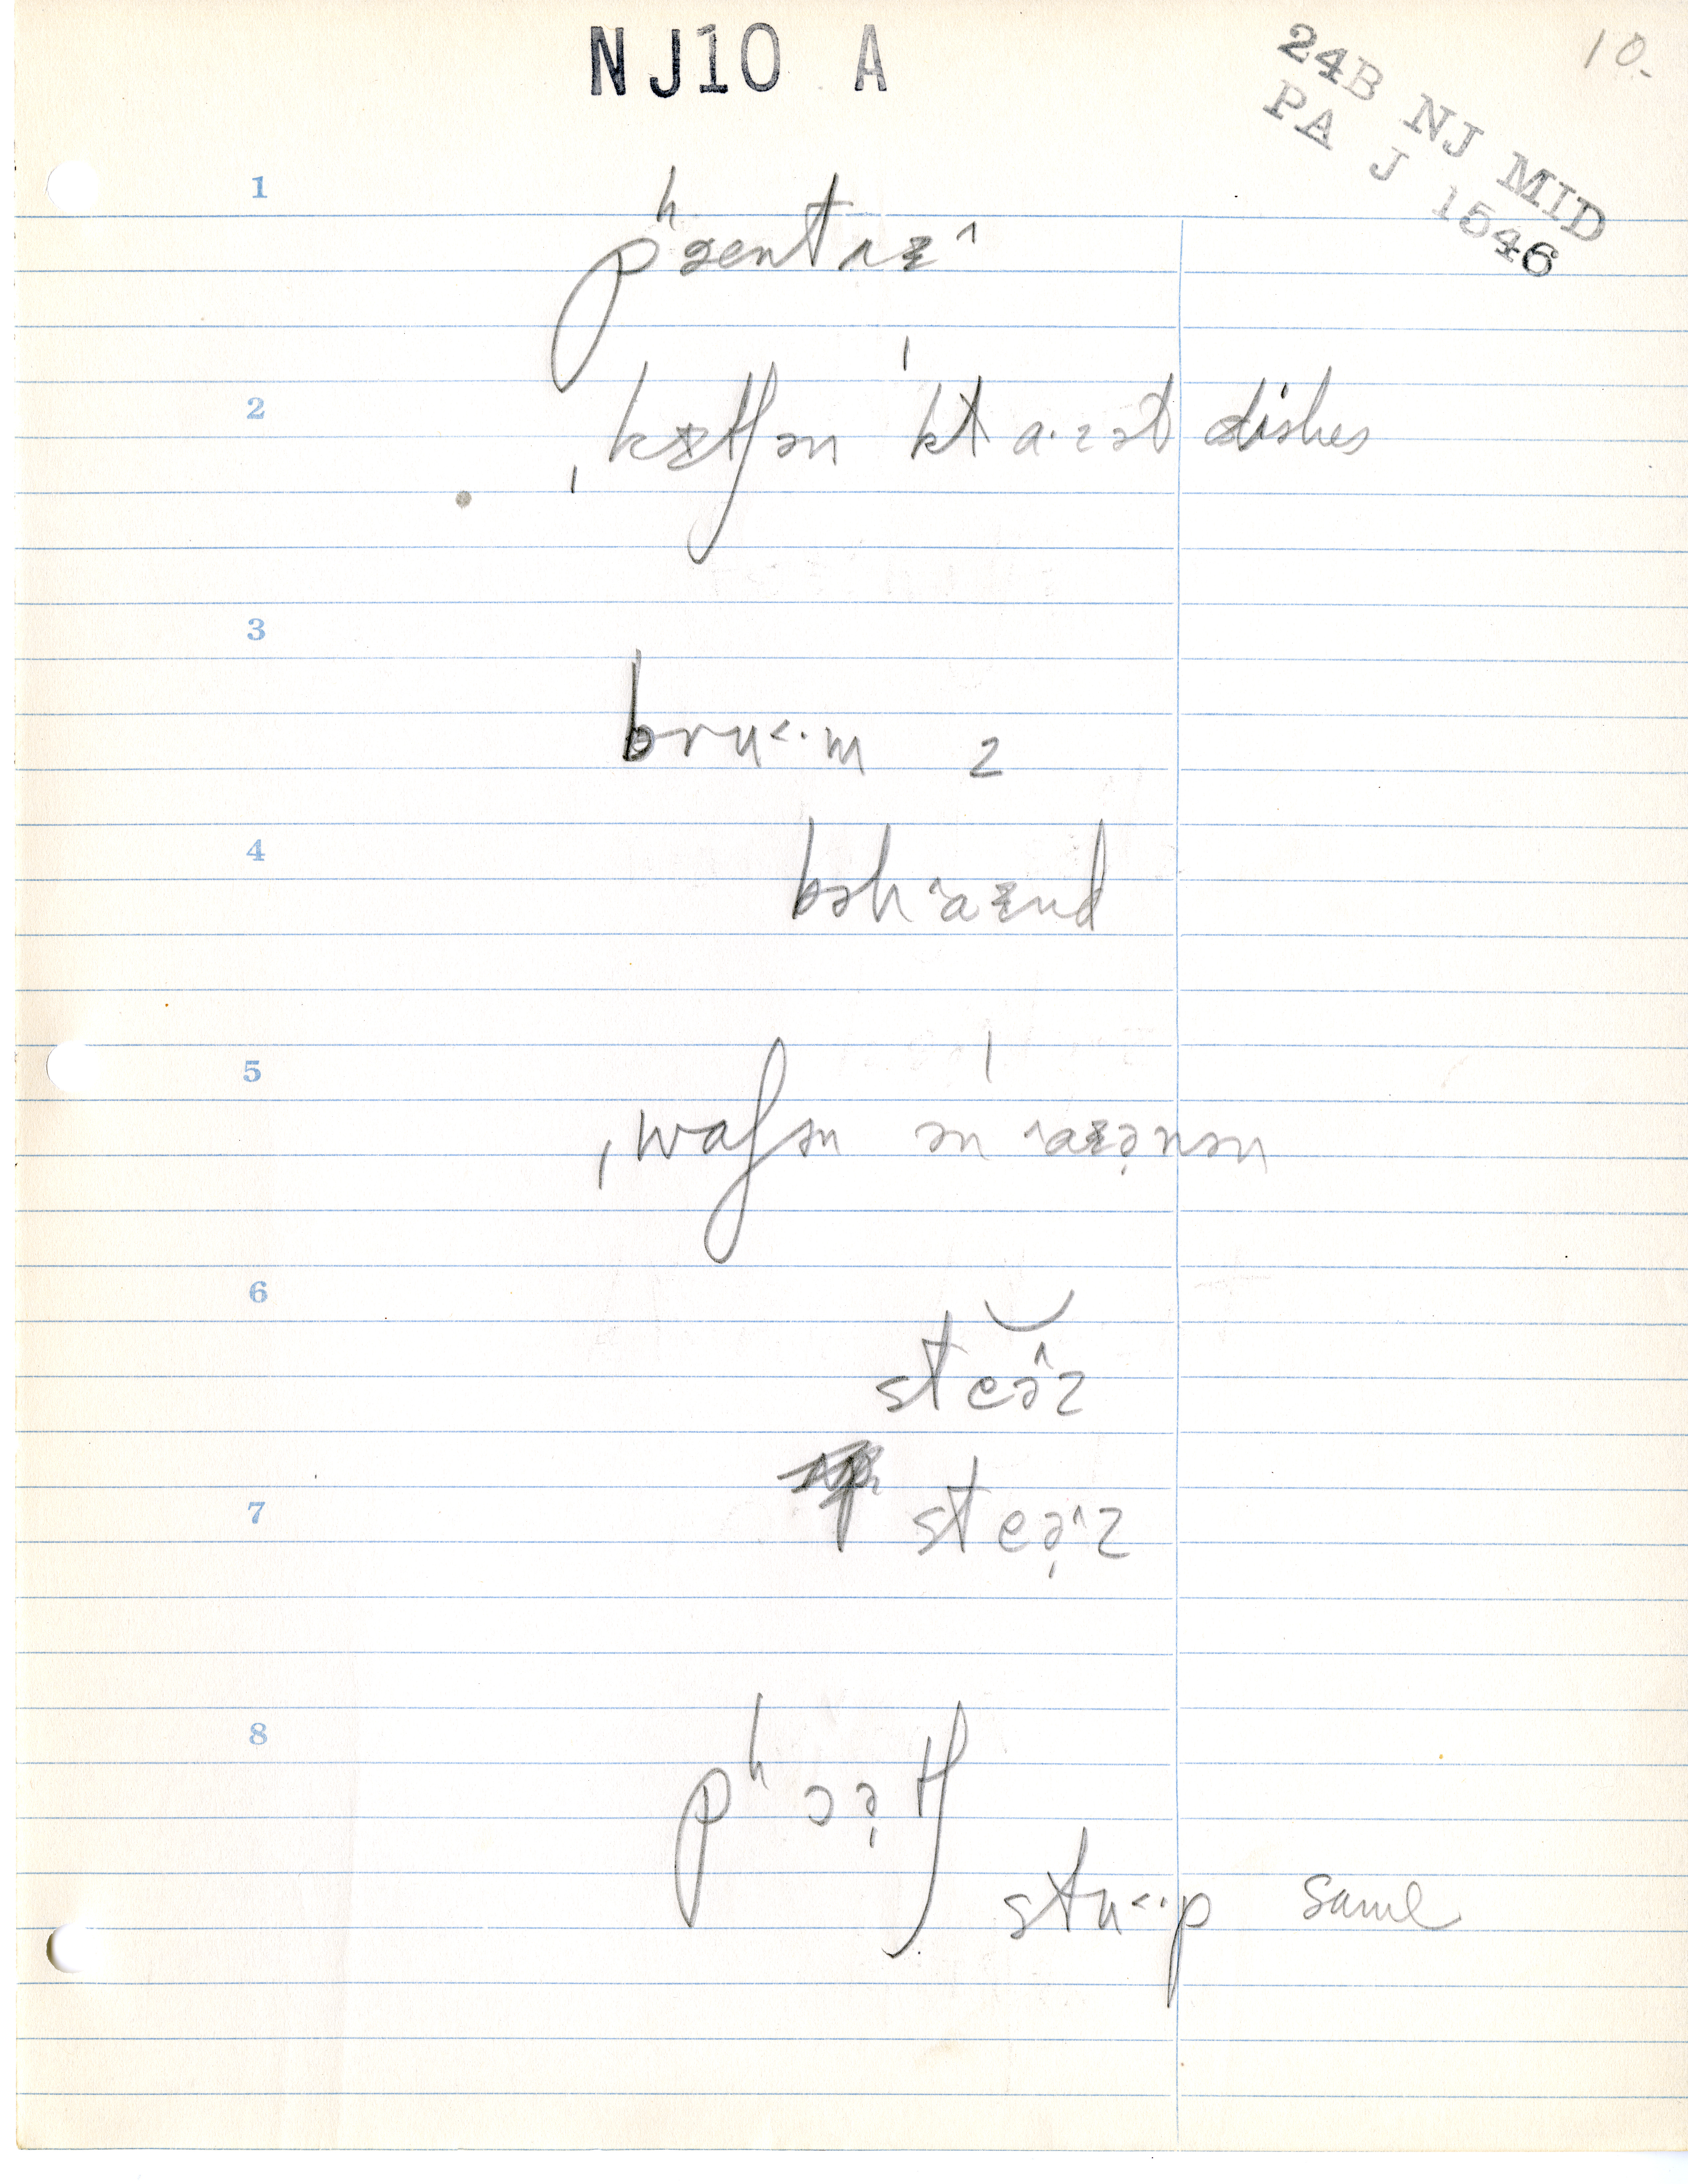 NJ10 A
10.
24B NJ MID
PA J 1546
1
pʰæntɹɪ^
2
ˌkɪtʃən ˈklɑ·zət dishes
3
bru<·m 2
4
bəhɑɪnd
5
ˌwɑʃən ən ˈɑɪə̣nən
6
steə^z
7
steə̣^z
8
pʰɔə̣tʃ
stu<·p same